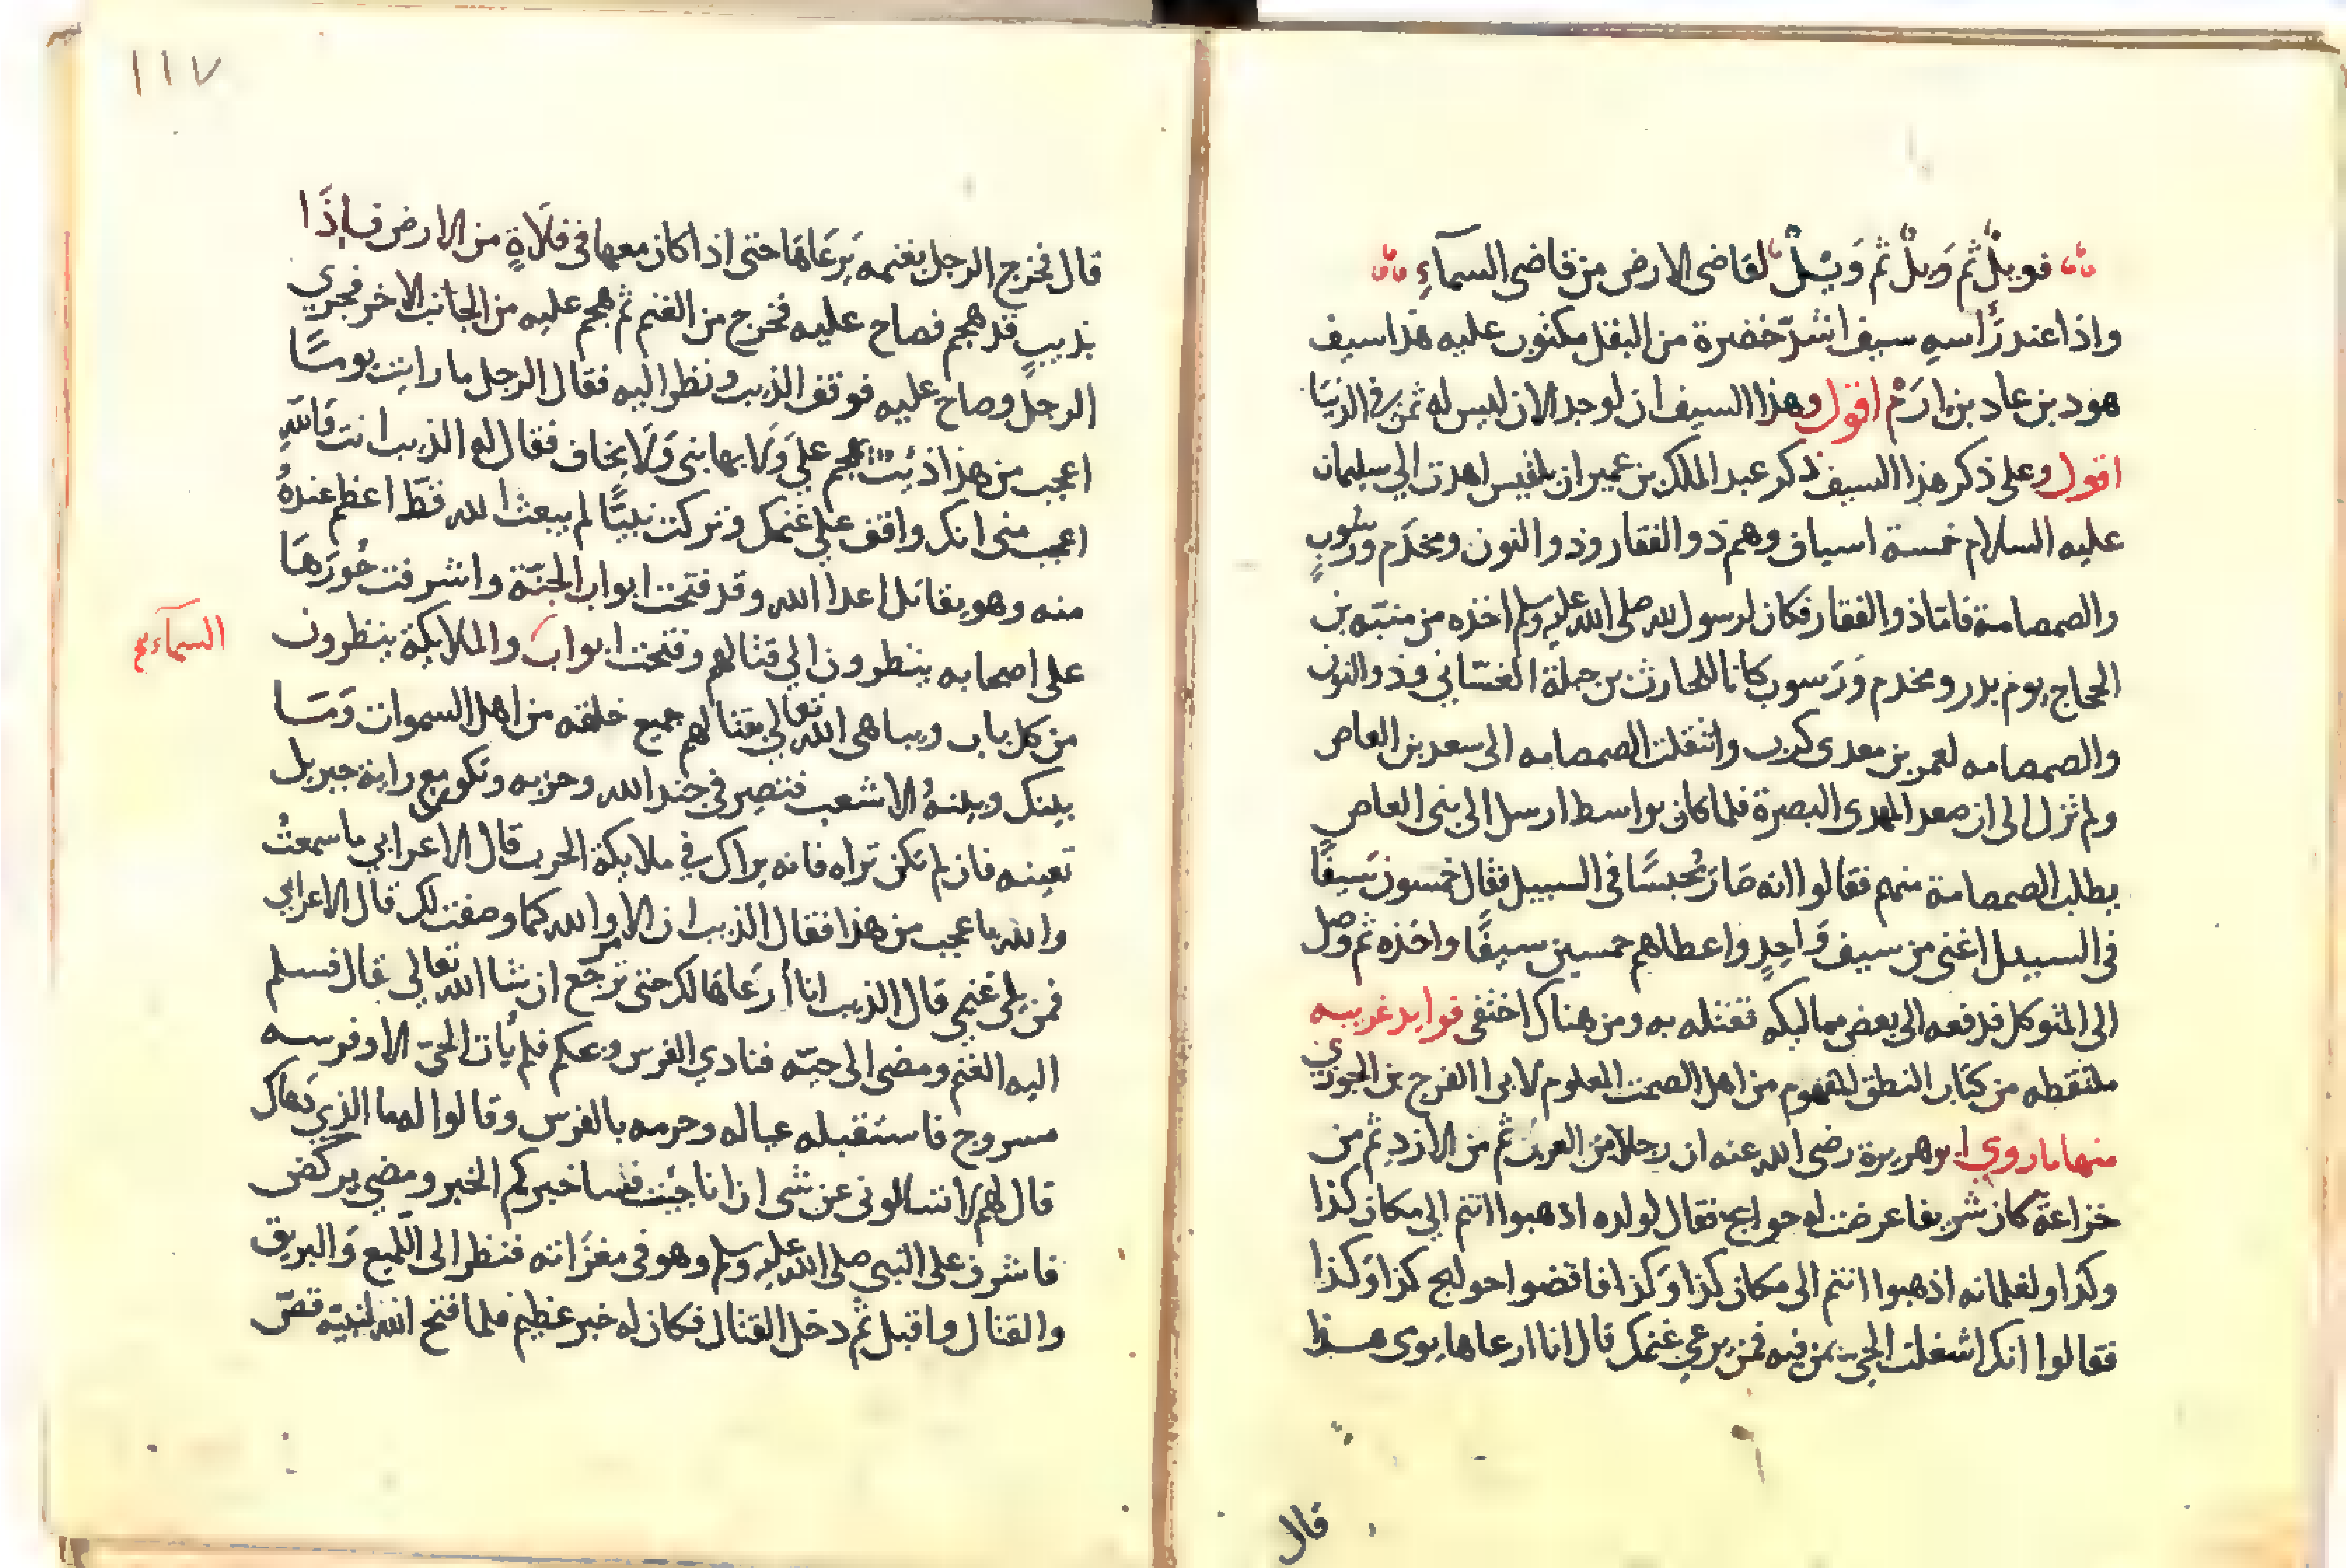 فويلٌ ثم وَيلٌ ثم وَيْلٌ لقاضى الارض من قاضى السمآءِ
واذا عند رَأسهِ سيف اشدّ خضرة من البقل مكتوب عليه هذا سيف
هود بن عاد بن ارَمْ اقول وهذا السيف ان لو وجد الان ليس له ثمن فى الدنيَا
اقول وعلى ذكر هذا السيف ذكر عبد الملك بن عمير ان بلقيس اهدت الي سليمان
عليه السلام خمسة اسياف وهم ذو الفقار وذو النون ومخذَم ورسُوبٍ
والصمصامة فامّا ذو الفقار فكان لرسول لله صلى الله عليه وسلم اخذه من منبّه بن
الحجاج يوم بدر ومخدم وَرَسوب كانا للحارث بن جبلة الغسّاني وذو النون
والصمصامه لعمر بن معدى كرب وانتقلت الصمصامه الى سعد بن العاص
ولم تزل الى ان صعد المهدى البصرة فلما كان بواسط ارسل الى بنى العاص
يطلب الصمصامة منهم فقالوا انه صَارَ مُحبسًا فى السبيل فقال خمسون سَيفًا
فى السبيل اغنى من سيف وَاحِدٍ واعطاهم خمسين سيفًا واخذه ثم وصل
الى المتوكل فدفعه الى بعض مماليكه تقتله به ومن هناك اختفى فوايد غريبه
ملتقطه من كتاب النطق المفهوم من اهل الصمت المعلوم لابى الفرج بن الجوزي
منها ما روي ابو هريرة رضى الله عنه ان رجلا من العرب ثم من الازدِ ثم من
خزاعة كان شريفا عرضت له حوايج فقال لولده اذهبوا انتم الي مكان كذا
وكذا ولغلمانه اذهبوا انتم الى مكان كذا وَكذا فاقضوا حوايج كذا وَكذا
فقالوا انك اشغلت الحى بمن فيه فمن يرعي غنمك قال انا ارعاها يومى هذا
قال
١١٧
قال فخرج الرجل بغنمه يَرعَاهَا حتى اذا كان معها فى فلَاةٍ من الارض فَاِذَا
بذيبٍ قد هجم فصاح عليه فخرج من الغنم ثم هجم عليه من الجانب الاخر فجري
الرجل وصاح عليه فوقف الذيب ونظر اليه فقال الرجل ما رايت يومًا
اعجب من هذا ذيبٌ يهجم عليَ وَلا يهابنى وَلَا يخاف فقال له الذيب انت وَاللهِ
اعجب منى انك واقف على غنمك وتركت نبيًّا لم يبعث الله قطّ اعظم عندهُ
منه وهو يقاتل اعدا الله وقد فتحت ابواب الجنّة واشرفت حُورَهَا
على اصحابه ينظرون الى قتالهم وفتحت ابوابَ والملايكة ينظرون
السمآء صح
من كل باب ويباهى الله تعالي بقتالهم جميع خلقه من اهل السموات وَمَا
بينك وبينهُ الا شعب فتصير فى جند الله وحزبه وتكون مع راية جبريل
تعينه فان لم تكن تراه فانه يراك في ملايكة الحرب قال الاعرابي ما سمعتُ
والله باعجب من هذا فقال الذيب ان الامر والله كما وصفت لك قال الاعرابي
فمن يلى غنمي قال الذيب انا أرعَاهَا لك حتى ترجع ان شا الله تعالي قال فسلم
اليه الغنم ومضى الى حيّه فنادي الفرس وعكم فلم يأت الحىّ الا وفرسه
مسروج فاستقبله عياله وحرمه بالفرس وقالوا له ما الذي دَهاك
قال لهم لا تسالونى عن شى ان انا جيت فساخبركم الخبر ومضي يركض
فاشرف على النبي صلى الله عليه وسلم وهو فى مغزَاته فنظر الى اللميع وَالبريق
والقتال واقبل ثم دخل القتال فكان له خبر عظيم فلما فتح الله لنبيّه قصّ